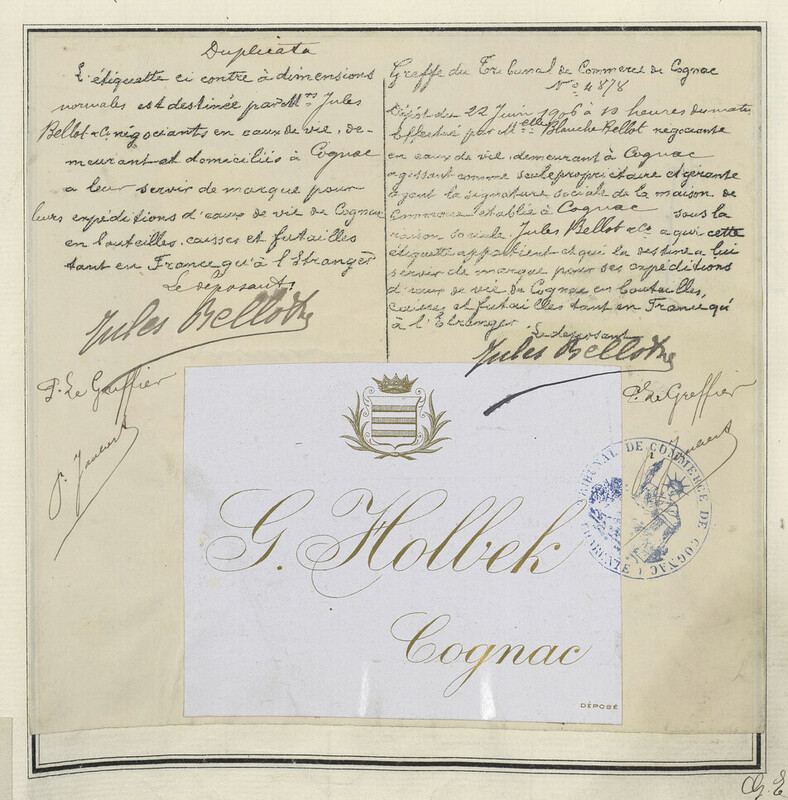 Duplicata
L'étiquette ci contre à dimensions
normales est destinée par M.rs Jules
Bellot & Co négociants en eaux de vie, de-
meurant et domiciliés à Cognac
a leur servir de marque pour
leurs expéditions d'eaux de vie de Cognac
en bouteilles, caisses et futailles
tant en France qu'à l'Etranger
Le déposant
Jules Bellot & Co
P. Le Greffier
Greffe du Tribunal de Commerce de Cognac
No 4878
Dépôt du 22 Juin 1906 à 10 heures du matin
Effectué par Melle Blanche Bellot négociante
en eaux de vie, demeurant à Cognac
agissant comme seule propriétaire et gérante
ayant la signature sociale de la maison de
Commerce établie à Cognac sous la
raison sociale Jules Bellot & Co a qui cette
étiquette appartient et qui la destine a lui
servir de marque pour ses expéditions
d'eaux de vie de Cognac en bouteilles,
caisses et futailles tant en France qu'
à l'Etranger
Le déposant
Jules Bellot & Co
P. Le Greffier
TRIBUNAL DE COMMERCE DE COGNAC
CHARENTE
G. Holbek
Cognac
DÉPOSÉ
G. E